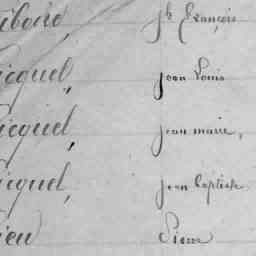 ibode, Jh François
icquel, jean Louis
icquel, jean marie,
icquel, jean baptiste
ieu Pierre